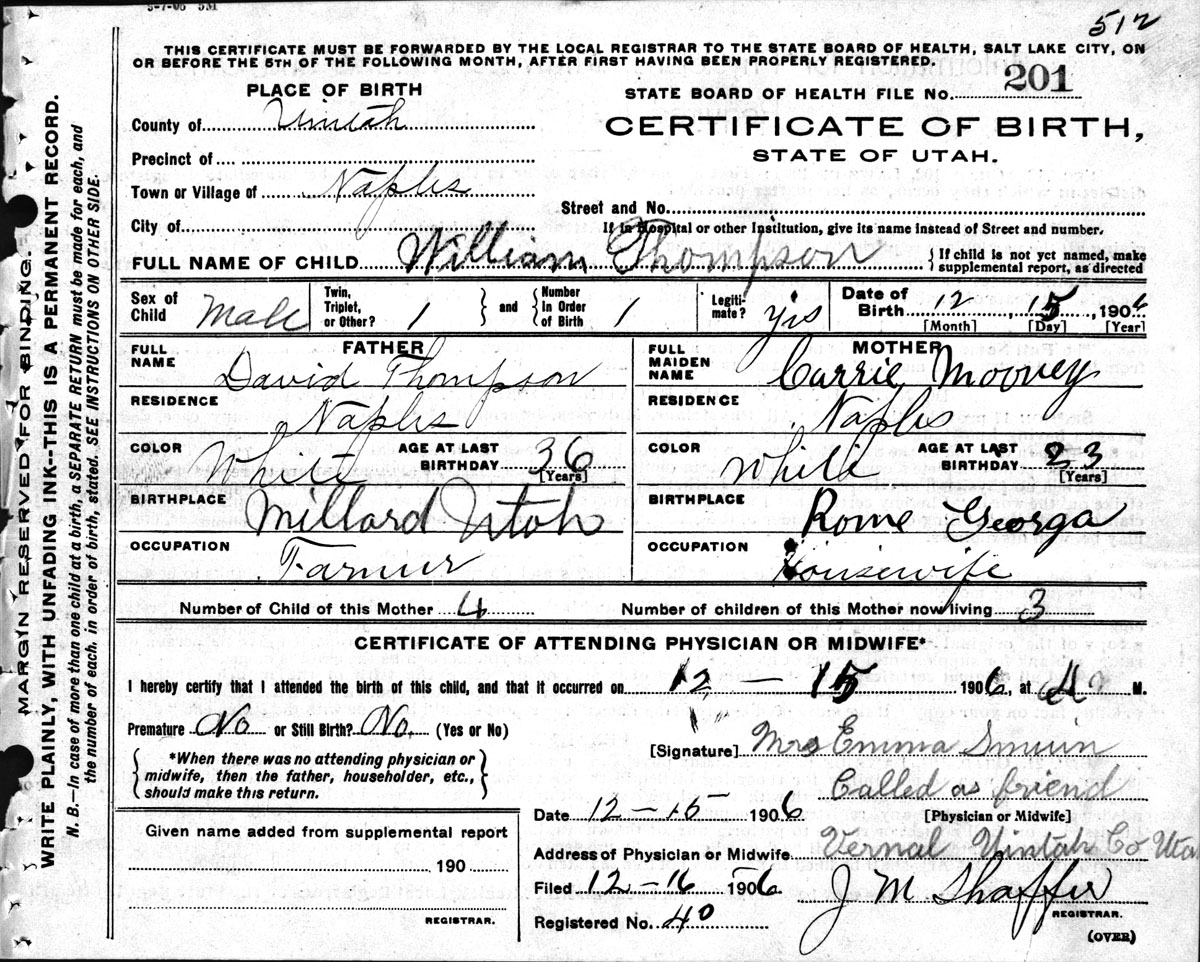 5-7-06 5M
512
THIS CERTIFICATE MUST BE FORWARDED BY THE LOCAL REGISTRAR TO THE STATE BOARD OF HEALTH, SALT LAKE CITY, ON
OR BEFORE THE 5TH OF THE FOLLOWING MONTH, AFTER FIRST HAVING BEEN PROPERLY REGISTERED.
PLACE OF BIRTH
STATE BOARD OF HEALTH FILE NO. 201
County of Uintah
CERTIFICATE OF BIRTH,
STATE OF UTAH.
Precinct of
Town or Village of Naples
Street and No.
City of
If in Hospital or other Institution, give its name instead of Street and number.
FULL NAME OF CHILD William Thompson { If child is not yet named, make supplemental report, as directed
Sex of Child Male Twin, Triplet, or Other? 1 } and { Number in Order of Birth 1 Legitimate? yes Date of Birth 12 15, 190
[Month] [Day] [Year]
FATHER
FULL NAME David Thompson
RESIDENCE Naples
COLOR White AGE AT LAST BIRTHDAY 36 [Years]
BIRTHPLACE Millard Utah
OCCUPATION Farmer
MOTHER
FULL MAIDEN NAME Carrie Mooney
RESIDENCE Naples
COLOR White AGE AT LAST BIRTHDAY 23 [Years]
BIRTHPLACE Rome Georga
OCCUPATION Housewife
Number of Child of this Mother 4 Number of children of this Mother now living 3
CERTIFICATE OF ATTENDING PHYSICIAN OR MIDWIFE*
I hereby certify that I attended the birth of this child, and that it occurred on 12 — 15 1906, at 4 M.
Premature No or Still Birth? No. (Yes or No)
[Signature] Mrs Emma Smuin
{ *When there was no attending physician or midwife, then the father, householder, etc., should make this return. }
Called as friend
[Physician or Midwife]
Date 12 — 15 — 1906
Given name added from supplemental report
190
REGISTRAR.
Address of Physician or Midwife Vernal Uintah Co Uta
Filed 12 — 16 1906 J M Shaffer
REGISTRAR.
Registered No. 40
(OVER)
MARGIN RESERVED FOR BINDING.
WRITE PLAINLY, WITH UNFADING INK--THIS IS A PERMANENT RECORD.
N. B.—In case of more than one child at a birth, a SEPARATE RETURN must be made for each, and
the number of each, in order of birth, stated. SEE INSTRUCTIONS ON OTHER SIDE.